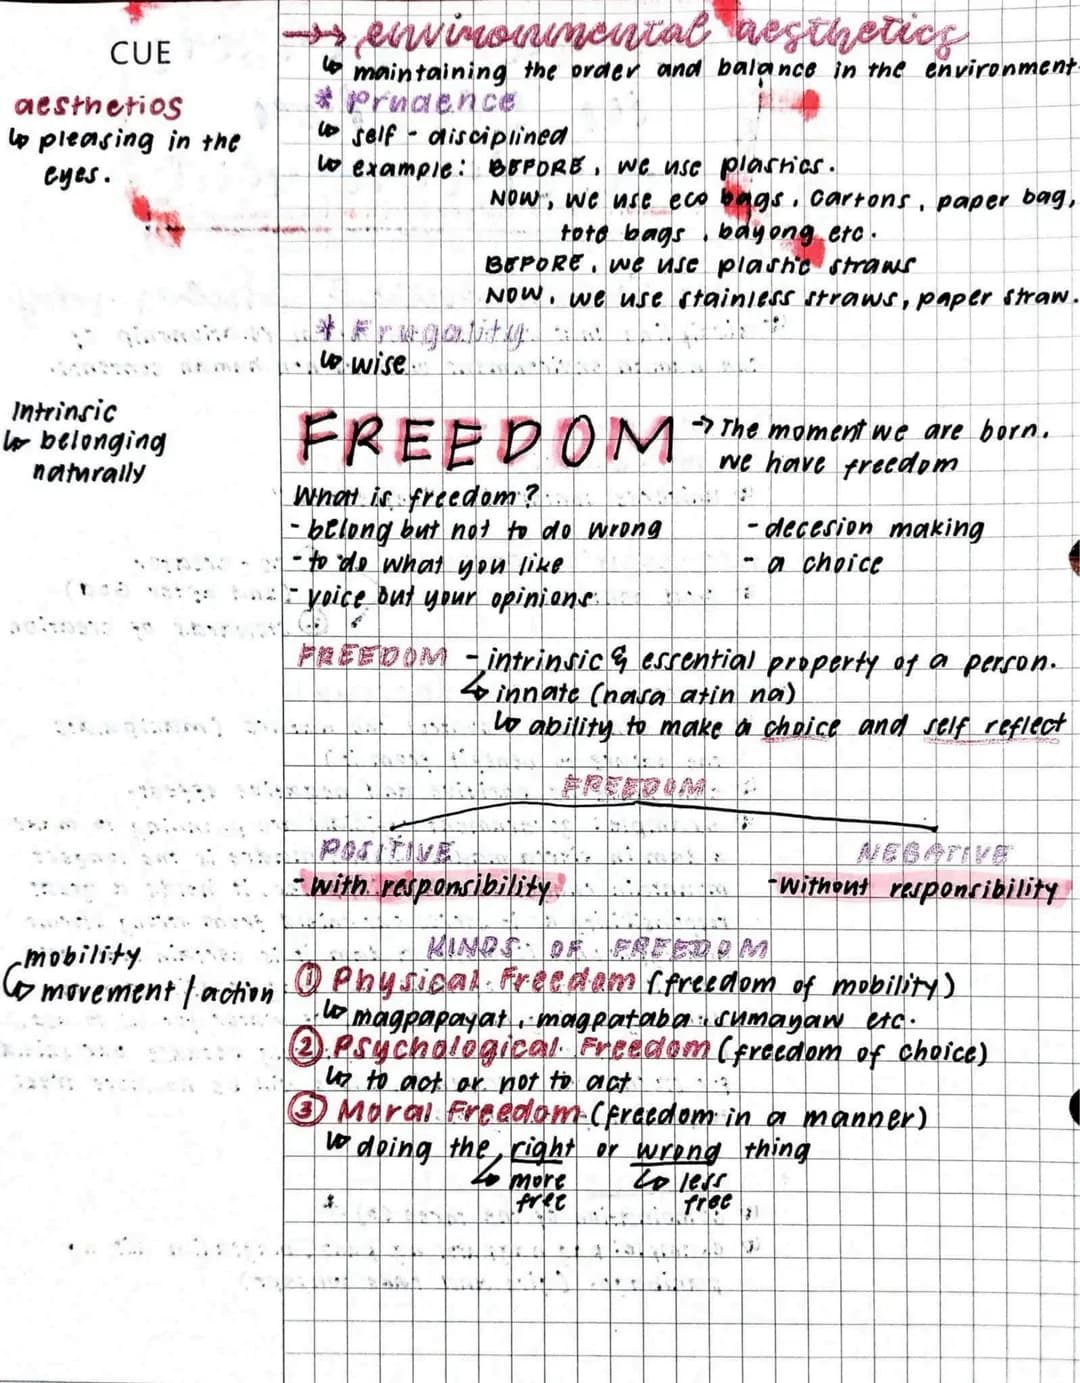 CUE
aesthetics
↳ pleasing in the
eyes.
→→ environmental aesthetics
↳ maintaining the order and balance in the environment
* Prudence
↳ self - disciplined
↳ example: BEFORE, we use plastics.
NOW, we use eco bags, cartons, paper bag,
tote bags, bayong etc.
BEFORE, we use plastic straws
NOW, we use stainless straws, paper straw.
* Frugality
↳ wise
Intrinsic
↳ belonging
naturally
FREEDOM → The moment we are born.
we have freedom
What is freedom?
- belong but not to do wrong - decesion making
- to do what you like - a choice
- voice out your opinions
FREEDOM - intrinsic & essential property of a person.
↳ innate (nasa atin na)
↳ ability to make a choice and self reflect
FREEDOM
POSITIVE NEGATIVE
- with responsibility - without responsibility
mobility
↳ movement / action
KINDS OF FREEDOM
① Physical Freedom (freedom of mobility)
↳ magpapayat, magpataba, sumayaw etc.
② Psychological Freedom (freedom of choice)
↳ to act or not to act
③ Moral Freedom (freedom in a manner)
↳ doing the right or wrong thing
↳ more ↳ less
free free